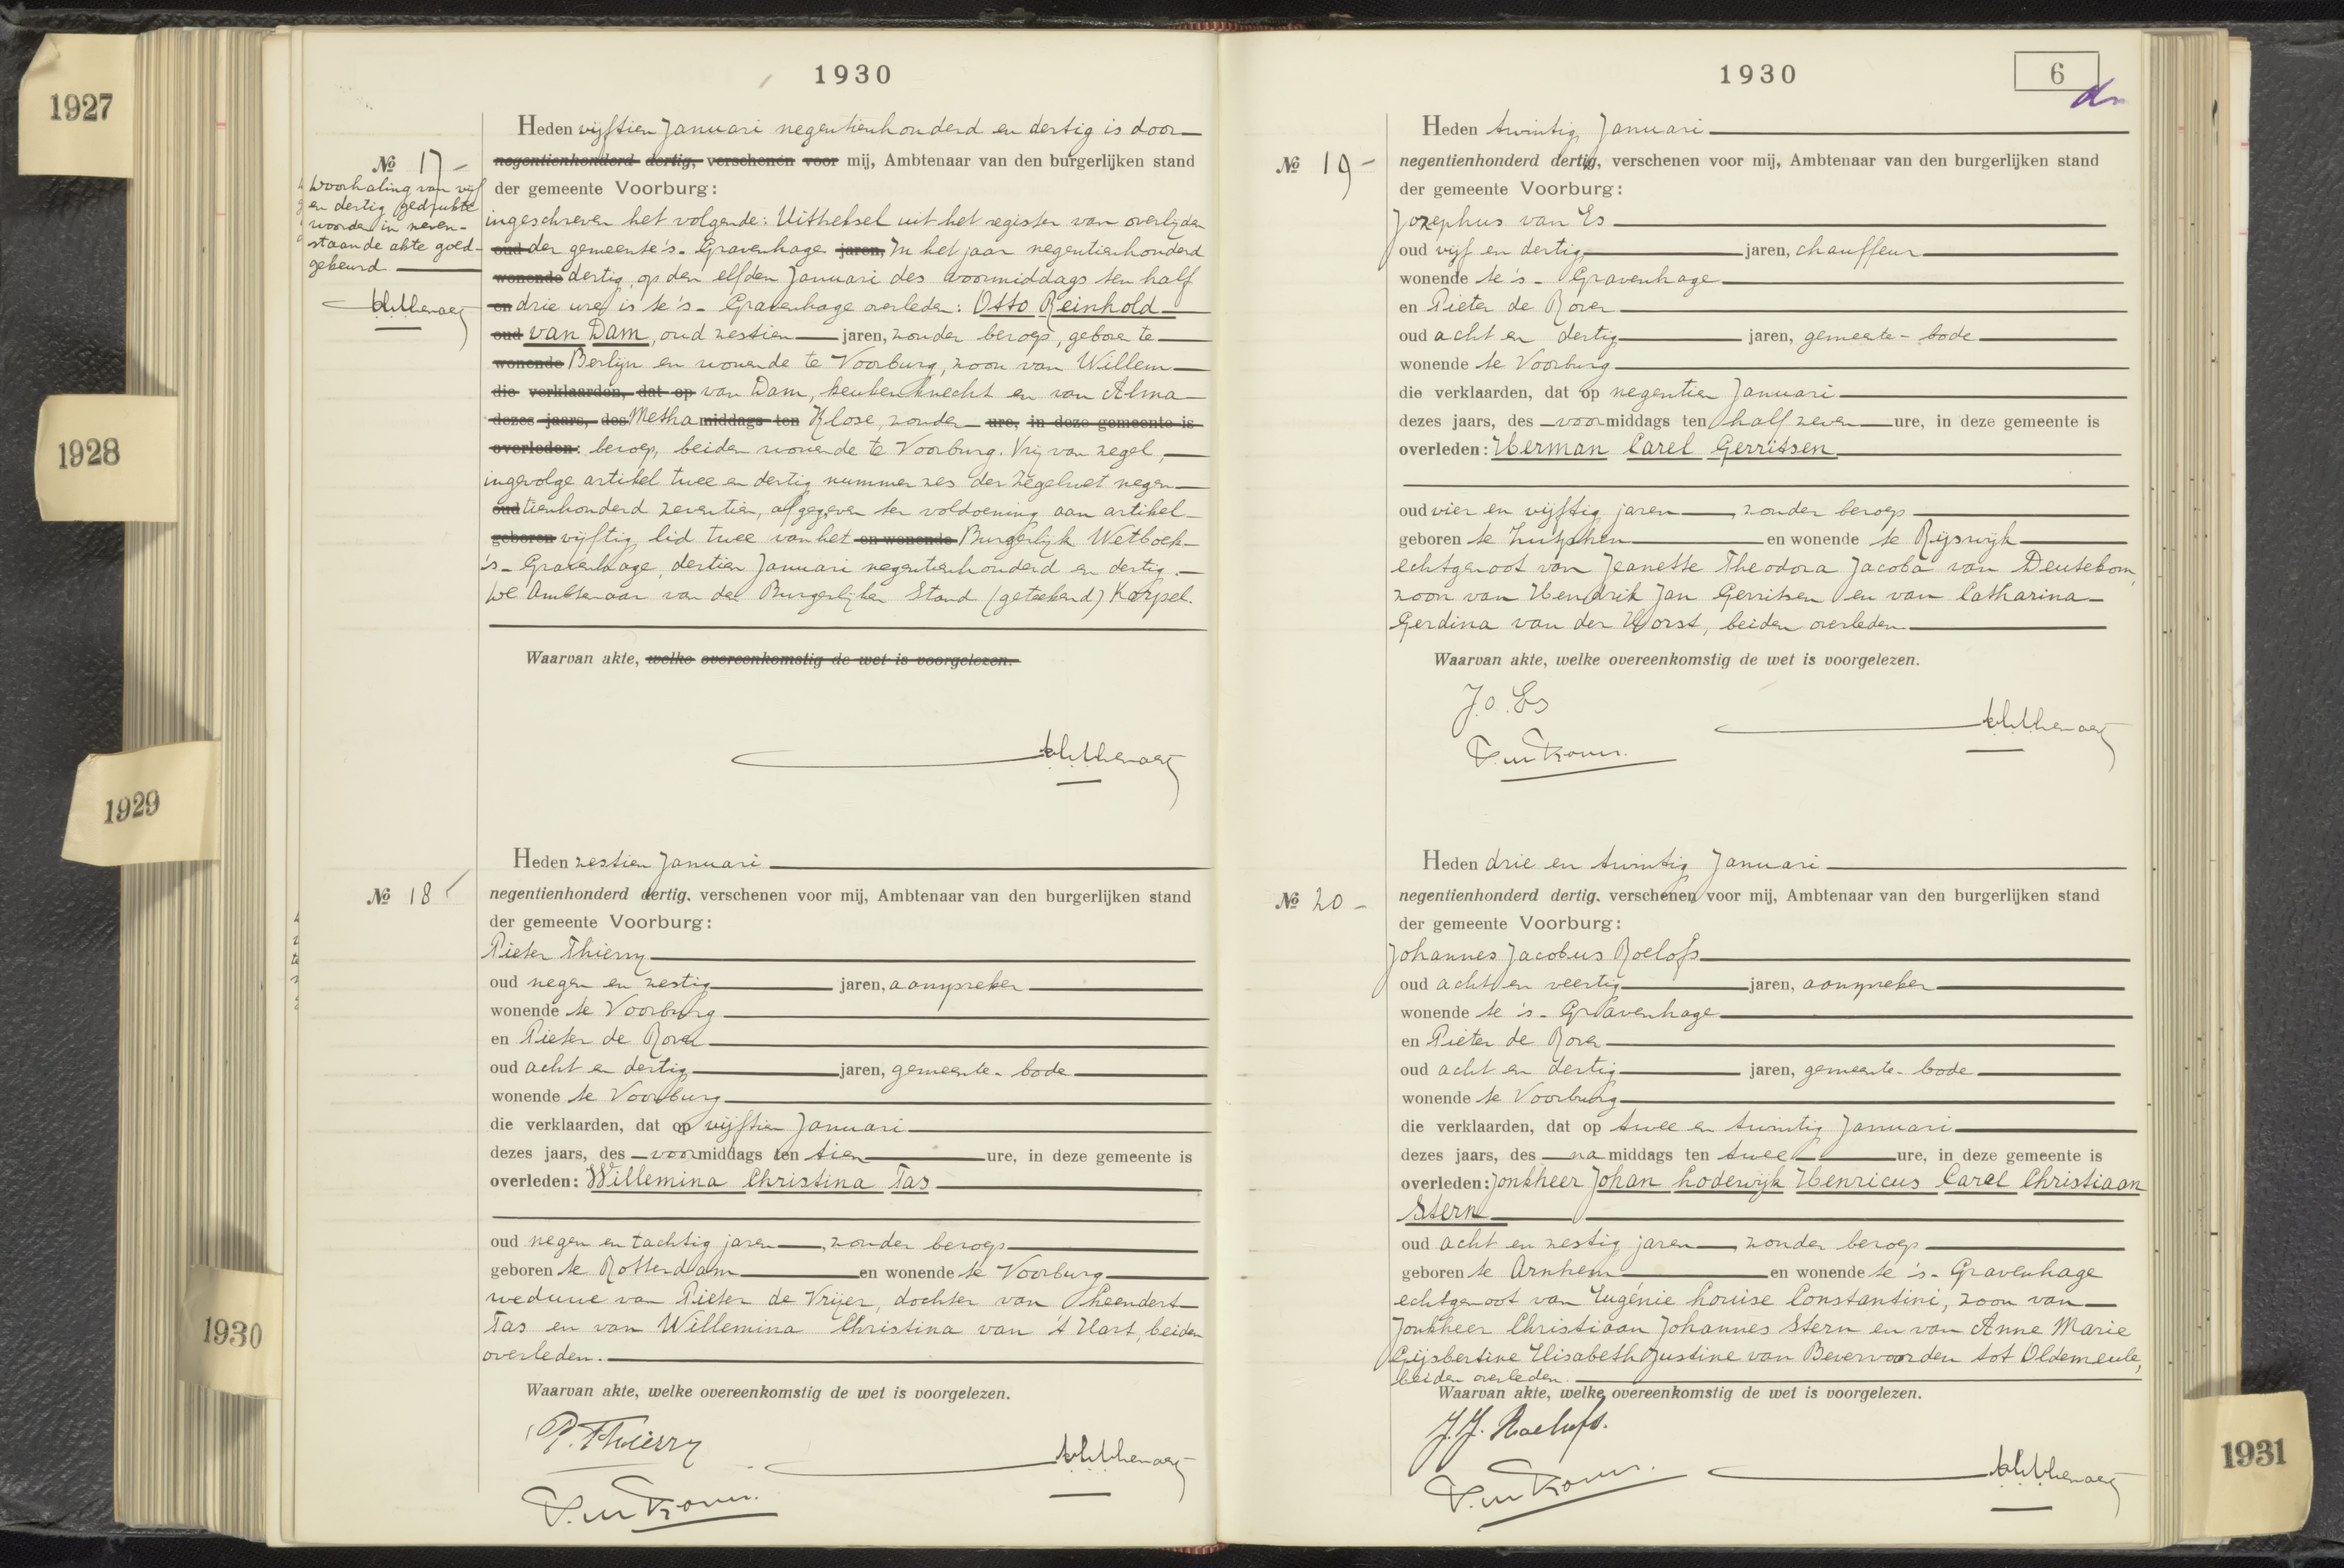 1927
1928
1929
1930
1930
Heden vijftien Januari negentienhonderd en dertig is door
№ 17
negentienhonderd dertig, verschenen voor mij, Ambtenaar van den burgerlijken stand
der gemeente Voorburg:
Doorhaling van vijf
en dertig gedrukte
woorden in neven-
staande akte goed-
gekeurd
ingeschreven het volgende: Uittreksel uit het register van overlijden
oud der gemeente 's-Gravenhage jaren, In het jaar negentienhonderd
wonende dertig, op den elfden Januari des voormiddags ten half
en drie ure is te 's-Gravenhage overleden: Otto Reinhold
oud van Dam, oud zestien jaren, zonder beroep, geboren te
wonende Berlijn en wonende te Voorburg, zoon van Willem
die verklaarden, dat op van Dam, keukenknecht en van Alma
dezes jaars, des Metha middags ten Klose, zonder ure, in deze gemeente is
overleden: beroep, beiden wonende te Voorburg. Vrij van zegel,
ingevolge artikel twee en dertig nummer zes der Zegelwet negen-
oud tienhonderd zeventien, afgegeven ter voldoening aan artikel
geboren vijftig lid twee van het en wonende Burgerlijk Wetboek
's-Gravenhage, dertien Januari negentienhonderd en dertig.
De Ambtenaar van den Burgerlijken Stand (geteekend) Korpel.
Waarvan akte, welke overeenkomstig de wet is voorgelezen.
Heden zestien Januari
№ 18
negentienhonderd dertig, verschenen voor mij, Ambtenaar van den burgerlijken stand
der gemeente Voorburg:
Pieter Thierry
oud negen en zestig jaren, aanspreker
wonende te Voorburg
en Pieter de Rover
oud acht en dertig jaren, gemeente-bode
wonende te Voorburg
die verklaarden, dat op vijftien Januari
dezes jaars, des voormiddags ten tien ure, in deze gemeente is
overleden: Willemina Christina Tas
oud negen en tachtig jaren, zonder beroep
geboren te Rotterdam en wonende te Voorburg
weduwe van Pieter de Vrijer, dochter van Leendert
Tas en van Willemina Christina van 't Hart, beiden
overleden.
Waarvan akte, welke overeenkomstig de wet is voorgelezen.
P. Thierry
1930
6
Heden twintig Januari
№ 19
negentienhonderd dertig, verschenen voor mij, Ambtenaar van den burgerlijken stand
der gemeente Voorburg:
Jozephus van Es
oud vijf en dertig jaren, chauffeur
wonende te 's-Gravenhage
en Pieter de Rover
oud acht en dertig jaren, gemeente-bode
wonende te Voorburg
die verklaarden, dat op negentien Januari
dezes jaars, des voormiddags ten half zeven ure, in deze gemeente is
overleden: Herman Carel Gerritsen
oud vier en vijftig jaren, zonder beroep
geboren te Zutphen en wonende te Rijswijk
echtgenoot van Jeanette Theodora Jacoba van Deutekom,
zoon van Hendrik Jan Gerritsen en van Catharina
Gerdina van der Worst, beiden overleden.
Waarvan akte, welke overeenkomstig de wet is voorgelezen.
Heden drie en twintig Januari
№ 20
negentienhonderd dertig, verschenen voor mij, Ambtenaar van den burgerlijken stand
der gemeente Voorburg:
Johannes Jacobus Roelofs
oud acht en veertig jaren, aanspreker
wonende te 's-Gravenhage
en Pieter de Rover
oud acht en dertig jaren, gemeente-bode
wonende te Voorburg
die verklaarden, dat op twee en twintig Januari
dezes jaars, des namiddags ten twee ure, in deze gemeente is
overleden: Jonkheer Johan Lodewijk Henricus Carel Christiaan
Stern
oud acht en zestig jaren, zonder beroep
geboren te Arnhem en wonende te 's-Gravenhage
echtgenoot van Eugénie Louise Constantini, zoon van
Jonkheer Christiaan Johannes Stern en van Anne Marie
Gijsbertine Elisabeth Justine van Bevervoorden tot Oldemeule,
beiden overleden.
Waarvan akte, welke overeenkomstig de wet is voorgelezen.
J.J. Roelofs.
1931